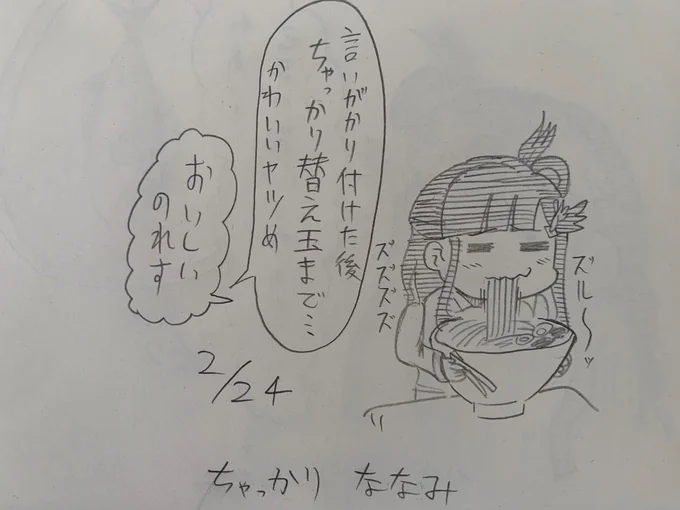 言いがかり付けた後
ちゃっかり替え玉まで…
かわいいヤツめ
おいしい
のれす
ズズズズ
ズル〜ッ
2/24
ちゃっかり ななみ